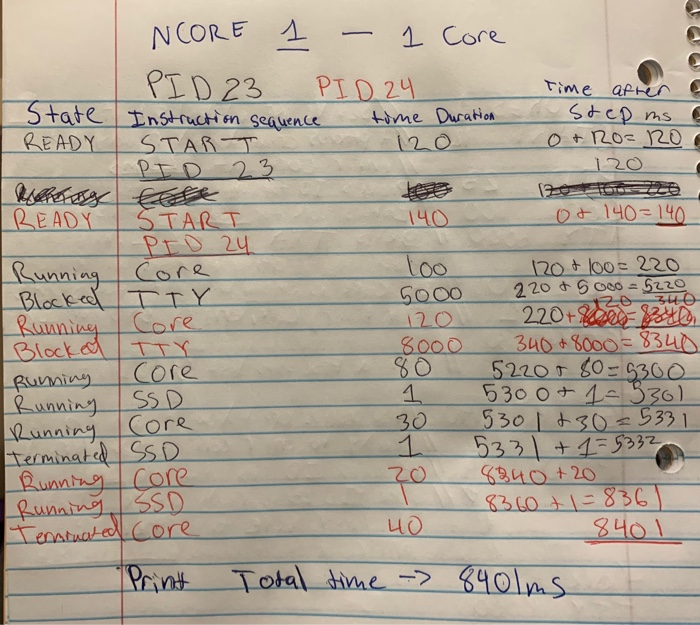 NCORE 1 — 1 Core
PID 23 PID 24
State Instruction sequence time Duration Time after Step ms
READY START 120 0 + 120 = 120
PID 23 120
READY START 140 0 + 140 = 140
PID 24
Running Core 100 120 + 100 = 220
Blocked TTY 5000 220 + 5000 = 5220
Running Core 120 220 + 120 340
Blocked TTY 8000 340 + 8000 = 8340
Running Core 80 5220 + 80 = 5300
Running SSD 1 5300 + 1 = 5301
Running Core 30 5301 + 30 = 5331
Terminated SSD 1 5331 + 1 = 5332
Running Core 20 8340 + 20
Running SSD 1 8360 + 1 = 8361
Terminated Core 40 8401
Print Total time -> 8401ms